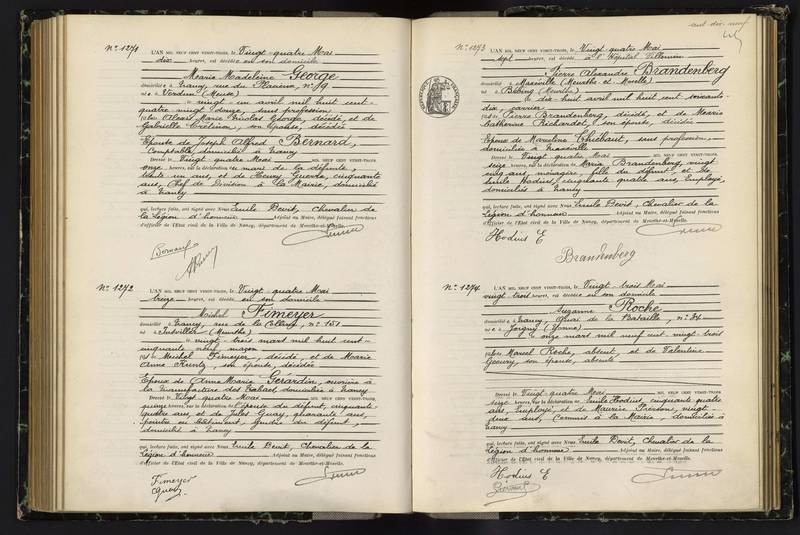 N° 1271
L'AN MIL NEUF CENT VINGT-TROIS, le Vingt-quatre Mai
dix heures, est décédée en son domicile
Marie Madeleine George
domiciliée à Nancy, rue du Placieux, n° 19
née à Verdun (Meuse)
le vingt-un avril mil huit cent
quatre vingt douze, sans profession
Nicolas George, décédé, et de
son épouse, décédée
Epouse de Joseph Alfred Bernard,
Comptable, domicilié à Nancy
Dressé le Vingt quatre Mai MIL NEUF CENT VINGT-TROIS,
onze heures, sur la déclaration du mari de la défunte,
trente un ans, et de Henry cinquante
ans, Chef de Division à la Mairie, domiciliés
à Nancy
qui, lecture faite, ont signé avec Nous Emile Devit, Chevalier de
la Légion d'honneur Adjoint au Maire, délégué faisant fonctions
d'officier de l'Etat civil de la Ville de Nancy, département de Meurthe-et-Moselle.
Bernard
N° 1272
L'AN MIL NEUF CENT VINGT-TROIS, le Vingt-quatre Mai
treize heures, est décédé en son domicile
Michel Fimeyer
domicilié à Nancy, rue de la Colline, n° 151
né à (Meurthe)
le vingt-trois mars mil huit cent
cinquante neuf, maçon
fils de Michel Fimeyer, décédé et de Marie
Anne son épouse, décédée
Epoux de Anne Marie Gerardin, ouvrière à
la Manufacture des Tabacs, domiciliée à Nancy
Dressé le Vingt quatre Mai MIL NEUF CENT VINGT-TROIS,
quinze heures, sur la déclaration de l'épouse du défunt, cinquante
quatre ans, et de Jules quarante ans,
peintre en bâtiment, gendre du défunt,
domiciliés à Nancy
qui, lecture faite, ont signé avec Nous Emile Devit, Chevalier de la
Légion d'honneur Adjoint au Maire, délégué faisant fonctions
d'officier de l'Etat civil de la Ville de Nancy, département de Meurthe-et-Moselle.
Fimeyer
cent dix-neuf
N° 1273
L'AN MIL NEUF CENT VINGT-TROIS, le Vingt quatre Mai
sept heures, est décédé à l'Hôpital Villemin
Pierre Alexandre Brandenberg
domicilié à Maxéville (Meurthe et Moselle)
né à Bébing (Meurthe)
le dix-huit avril mil huit cent soixante-
dix,
fils de Pierre Brandenberg, décédé, et de Marie
Catherine Richardot, son épouse, décédée
Epoux de Madeleine Thiébaut, sans profession,
domiciliée à Maxéville
Dressé le Vingt quatre Mai MIL NEUF CENT VINGT-TROIS,
seize heures, sur la déclaration de Maria Brandenberg, vingt
cinq ans, ménagère, fille du défunt, et de
Emile Hodius, cinquante quatre ans, Employé,
domiciliés à Nancy
qui, lecture faite, ont signé avec Nous Emile Devit, Chevalier de la
Légion d'honneur Adjoint au Maire, délégué faisant fonctions
d'officier de l'Etat civil de la Ville de Nancy, département de Meurthe-et-Moselle.
Hodius E
Brandenberg
N° 1274
L'AN MIL NEUF CENT VINGT-TROIS, le Vingt-trois Mai
vingt trois heures, est décédée en son domicile
Suzanne Roche
domiciliée à Nancy, Quai de la Bataille, n° 34
née à Joigny (Yonne)
le onze mars mil neuf cent vingt trois
fille de Marcel Roche, absent, et de Valentine
son épouse, absente
Dressé le Vingt quatre Mai MIL NEUF CENT VINGT-TROIS,
seize heures, sur la déclaration de Emile Hodius, cinquante quatre
ans, Employé, et de Maurice vingt-
deux ans, Commis à la Mairie, domiciliés à
Nancy
qui, lecture faite, ont signé avec Nous Emile Devit, Chevalier de la
Légion d'honneur Adjoint au Maire, délégué faisant fonctions
d'officier de l'Etat civil de la Ville de Nancy, département de Meurthe-et-Moselle.
Hodius E